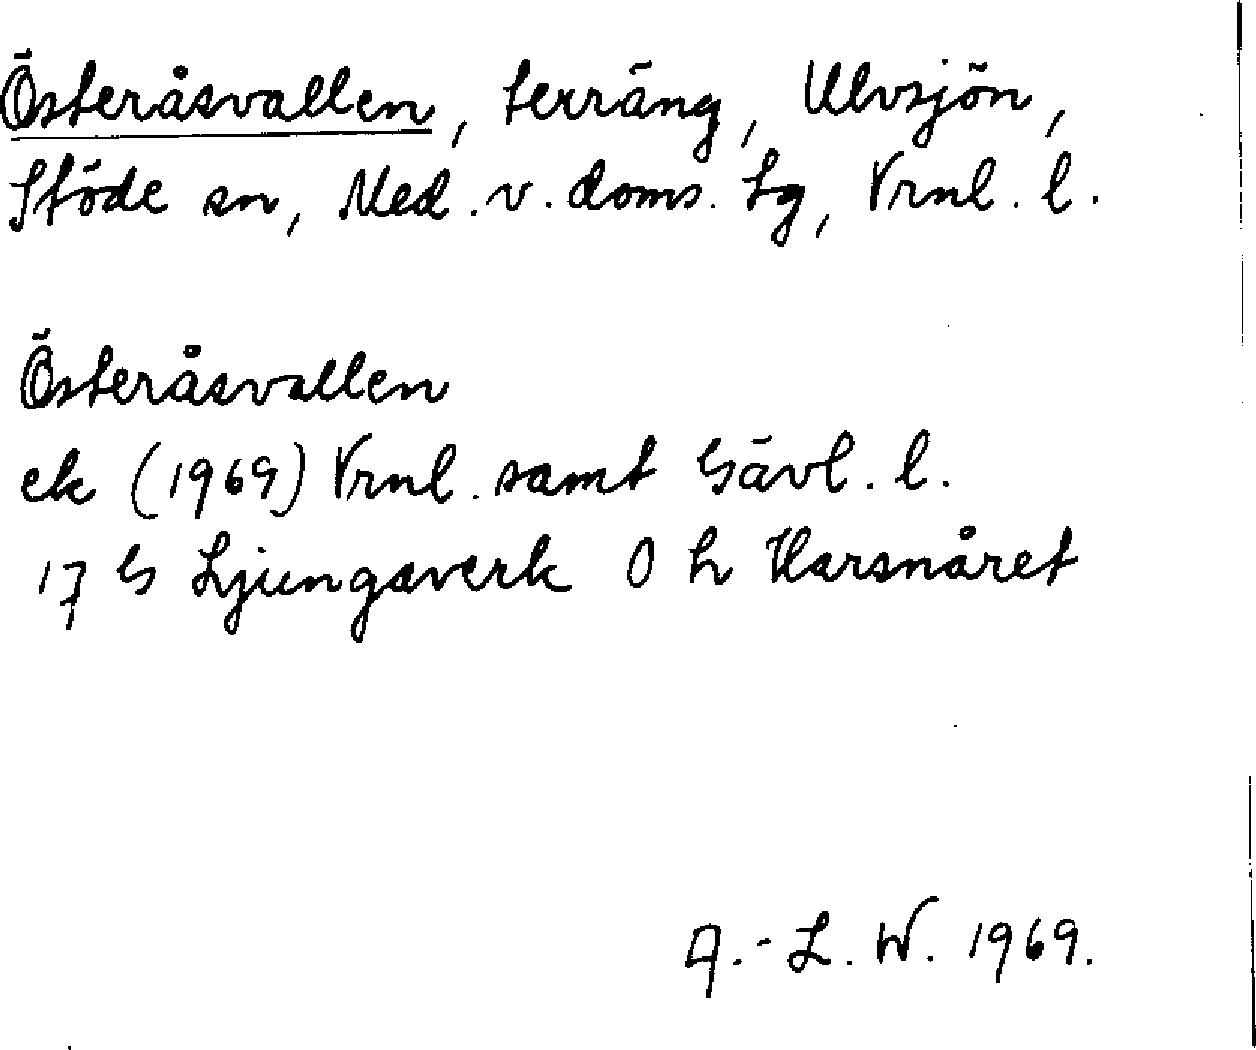 Österåsvallen, terräng, Ulvsjön,
Stöde sn, Med. v. doms. tg, Vrnl. l.
Österåsvallen
ek (1969) Vrnl. samt Gävl. l.
17 G Ljungaverk 0 h Harsnåret
A.-L. W. 1969.